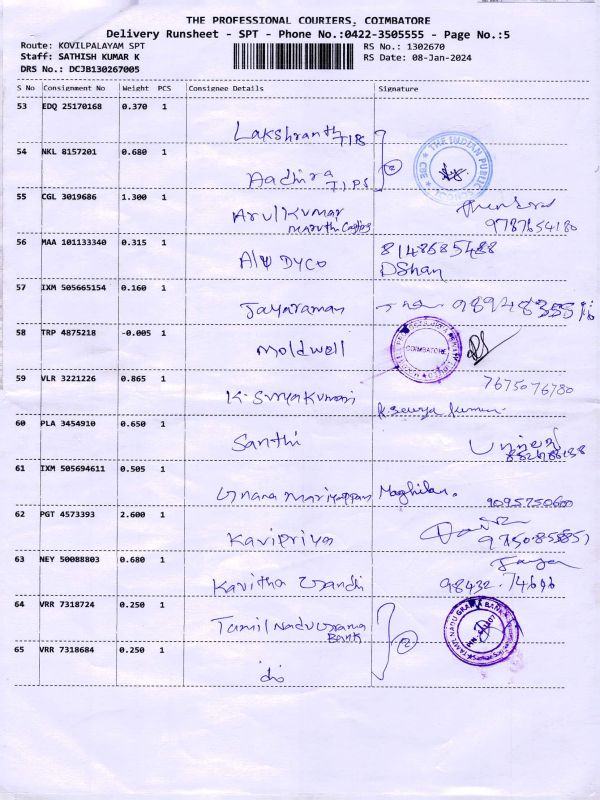 THE PROFESSIONAL COURIERS, COIMBATORE
Delivery Runsheet - SPT - Phone No.:0422-3505555 - Page No.:5
Route: KOVILPALAYAM SPT
RS No.: 1302670
Staff: SATHISH KUMAR K
RS Date: 08-Jan-2024
DRS No.: DCJB130267005
S No Consignment No Weight PCS Consignee Details Signature
53 EDQ 25170168 0.370 1
Lakshranth TIPS
54 NKL 8157201 0.680 1
THE INDIAN PUBLIC
CBE
Aadhira TIPS
2
55 CGL 3019686 1.300 1
Arul Kumar
Maruth
9787654180
56 MAA 101133340 0.315 1
8148685488
DShan
DYCO
57 IXM 505665154 0.160 1
Jayaraman
58 TRP 4875218 -0.005 1
COIMBATORE
Moldwell
59 VLR 3221226 0.865 1
7675076780
K. Surya Kumari
60 PLA 3454910 0.650 1
Santhi
61 IXM 505694611 0.505 1
Gnana Mariyappan Maghilan.
62 PGT 4573393 2.600 1
Kavipriya
63 NEY 50088803 0.680 1
Kavitha Gandhi
98432
64 VRR 7318724 0.250 1
TAMIL NADU GRAMA BANK
Tamil Nadu Grama
Bank
2
65 VRR 7318684 0.250 1
do